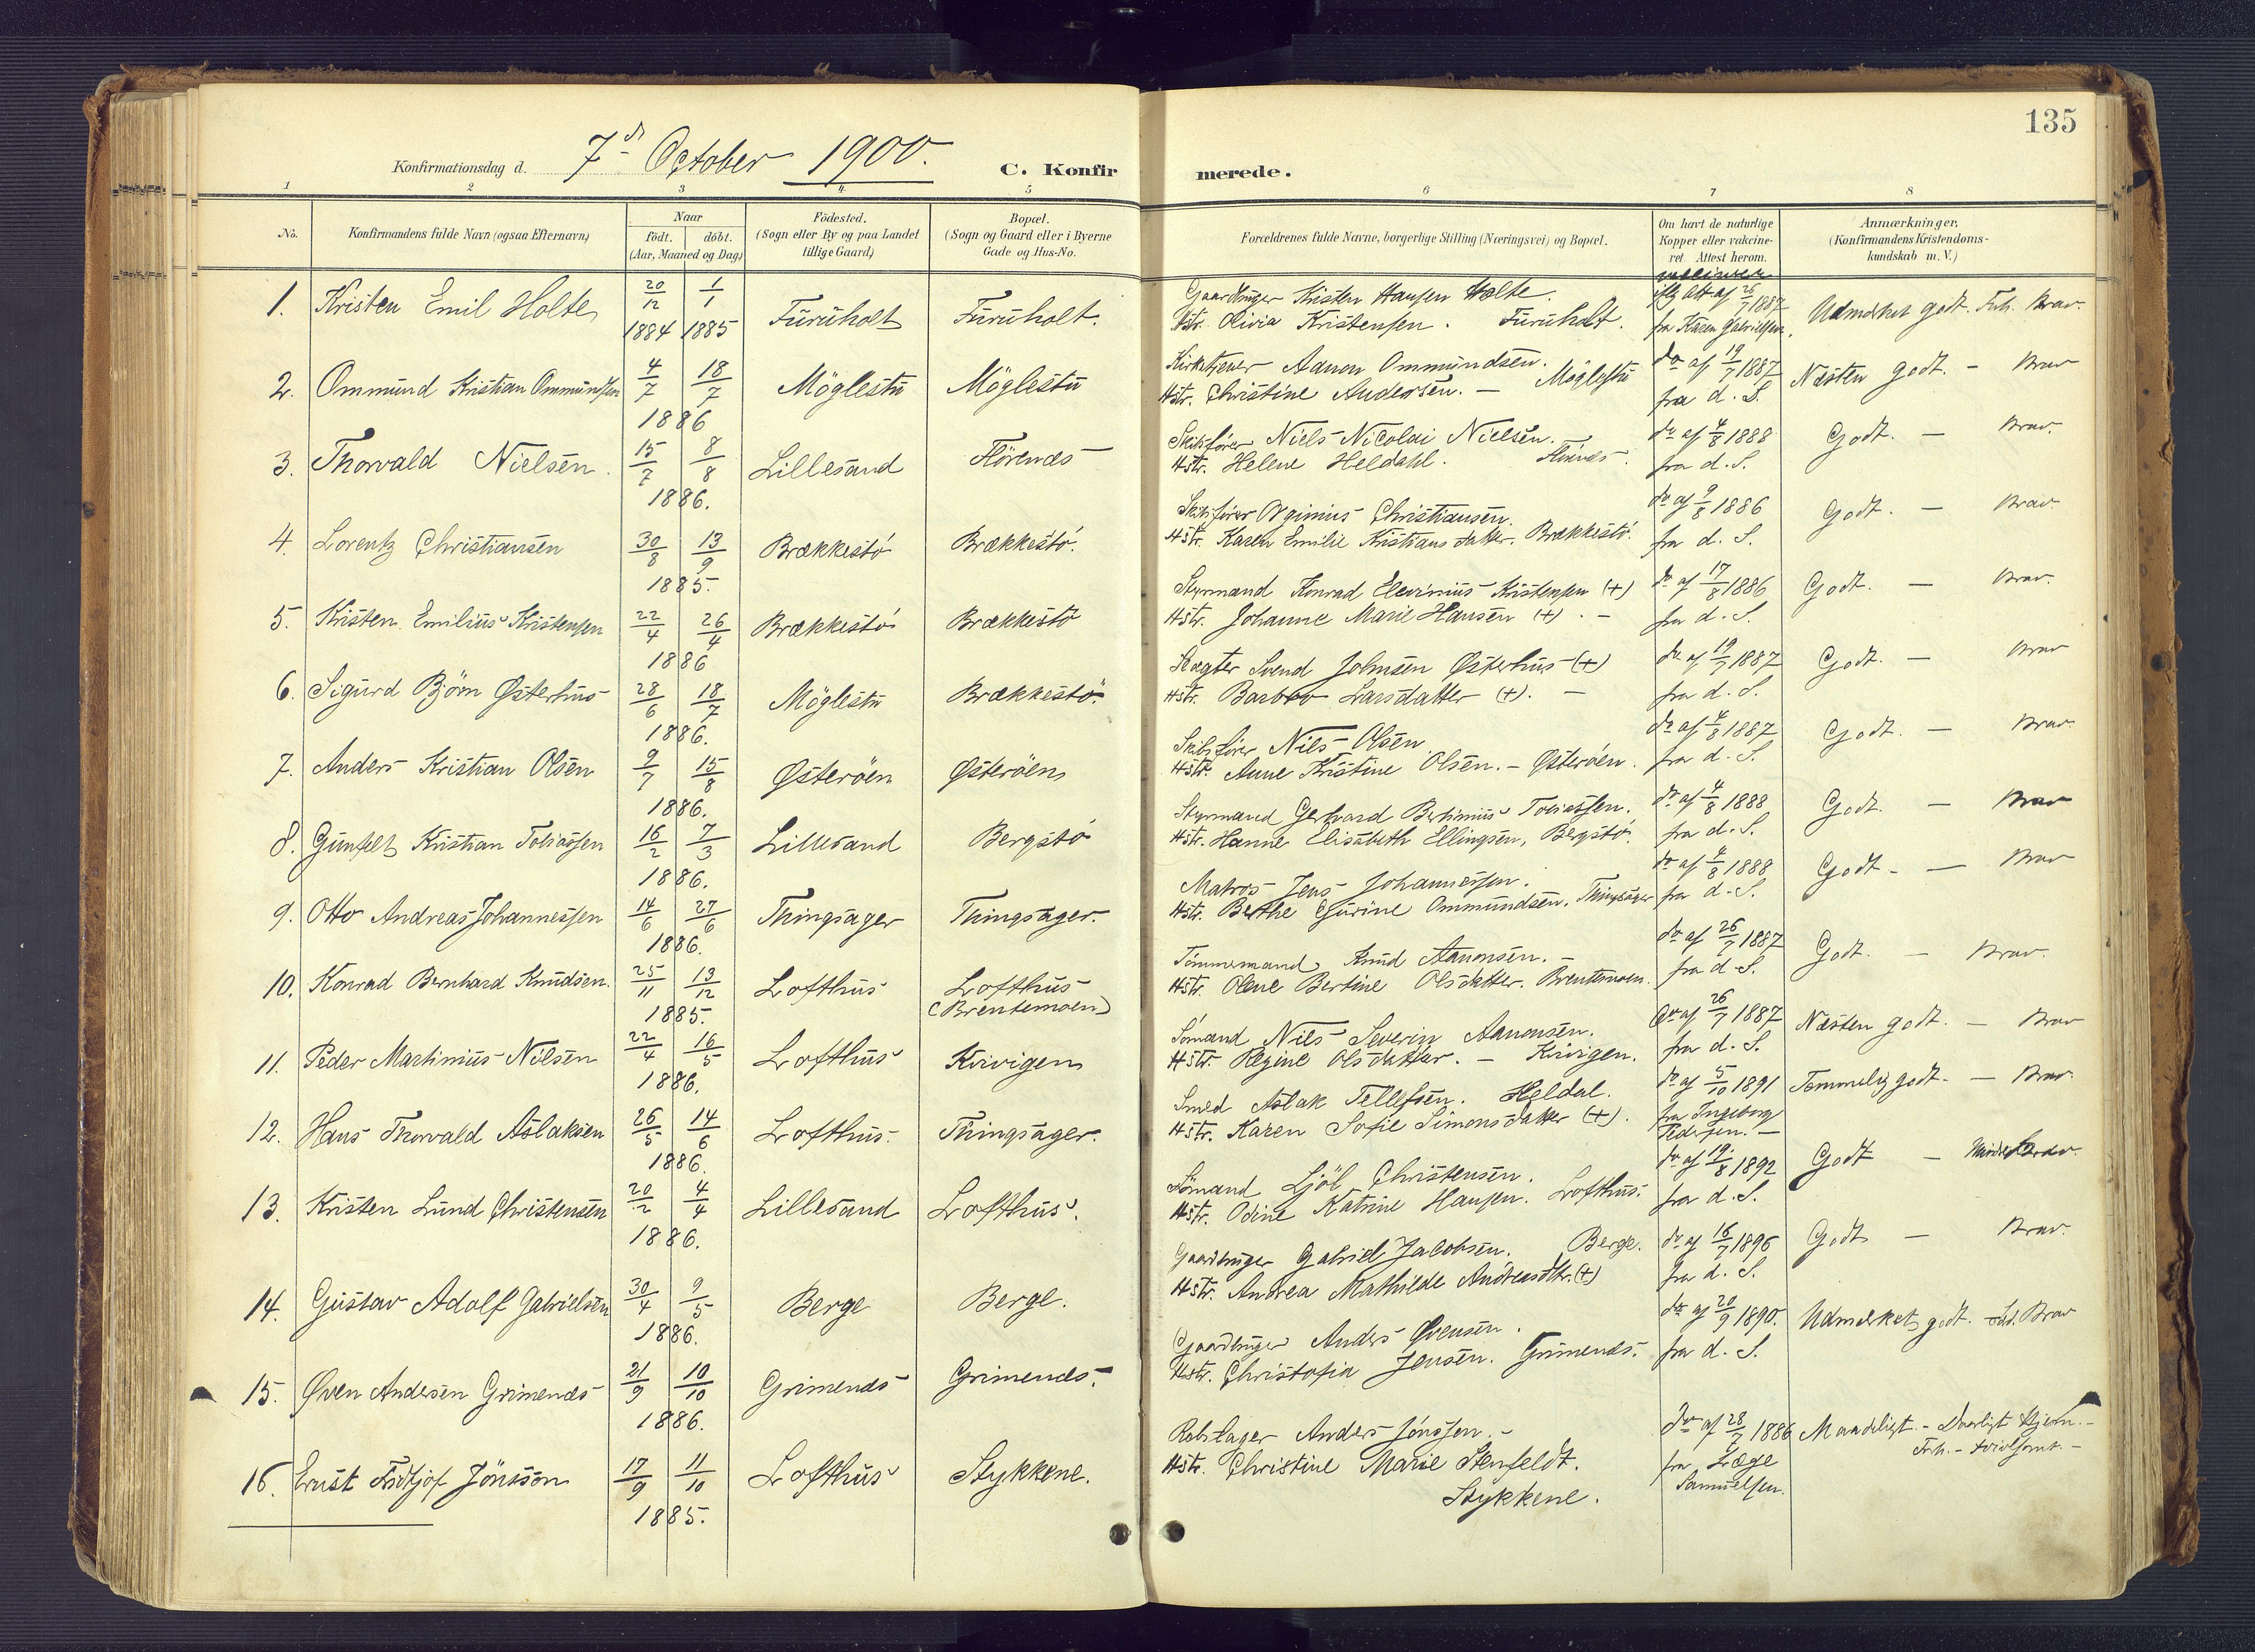 135
Konfirmationsdag d. 7de October 1900. C. Konfirmerede.
1 2 3 4 5 6 7 8
No. Konfirmandens fulde Navn (ogsaa Efternavn) Naar födt. döbt. (Aar, Maaned og Dag) Födested. (Sogn eller By og paa Landet tillige Gaard) Bopæl. (Sogn og Gaard eller i Byerne Gade og Hus-No. Forældrenes fulde Navne, borgerlige Stilling (Næringsvei) og Bopæl. Om havt de naturlige Kopper eller vakcineret. Attest herom. Anmærkninger. (Konfirmandens Kristendomskundskab m. V.)
1. Kristen Emil Holte 20/12 1884 1/1 1885 Furuholt Furuholt. Gaardbruger Kristen Hansen Holte.
Hstr. Olivia Kristensen. Furuholt. iflg Att af 26/7 1887 fra Karen Gabrielsen. Udmærket godt. Brav.
2. Ommund Kristian Ommundsen 4/7 18/7 1886 Möglestu Möglestu Kirketjener Aanon Ommundsen.
Hstr. Christine Andersen. — Möglestu do af 19/7 1887 fra d. S. Næsten godt. — Brav
3. Thorvald Nielsen. 15/7 8/8 1886. Lillesand Flörenæs Skibsfører Niels Nicolai Nielsen.
Hstr. Helene Heldahl. do af 4/8 1888 fra d. S. Godt. — Brav.
4. Lorentz Christiansen 30/8 13/9 1885. Brækkestö Brækkestö. Skibsfører Christiansen.
Hstr. Karen Emilie Kristiansdatter. Brækkestö. do af 9/8 1886 fra d. S. Godt. — Brav
5. Kristen Emilius Kristensen 22/4 26/4 1886 Brækkestö Brækkestö Styrmand Konrad Elevinius Kristensen (+)
Hstr. Johanne Marie Hansen (+). — do af 17/8 1886 fra d. S. Godt. — Brav.
6. Sigurd Björn Østerhus 28/6 18/7 1886. Möglestu Brækkestö. Svend Johnsen Østerhus (+)
Hstr. Barbro Larsdatter (+). — do af 19/7 1887 fra d. S. Godt. — Brav
7. Anders Kristian Olsen 9/7 15/8 1886. Østeröen Østeröen Skibsfører Nils Olsen.
Hstr. Anne Kristine Olsen. — Østeröen. do af 4/8 1887 fra d. S. Godt. — Brav.
8. Gunfelt Kristian Tobiassen 16/2 7/3 1886. Lillesand Bergstö Styrmand Gerhard Bertinius Tobiassen.
Hstr. Hanne Elisabeth Ellingsen, Bergstö. do af 4/8 1888 fra d. S. Godt. — Brav
9. Otto Andreas Johannessen 14/6 27/6 1886. Thingsager Thingsager. Matros Jens Johannessen.
Hstr. Berthe Gurine Ommundsen. Thingsager do af 4/8 1888 fra d. S. Godt. — Brav
10. Konrad Bernhard Knudsen. 25/11 13/12 1885. Lofthus Lofthus (Brentemoen) Tömmermand Knud Aanonsen. —
Hstr. Olene Bertine Olsdatter. Brentemoen. do af 26/7 1887 fra d. S. Godt. — Brav.
11. Peder Martinius Nilsen 22/4 16/5 1886. Lofthus Kvivigen Sömand Nils Severin Aanonsen.
Hstr. Regine Olsdatter. — Kvivigen. do af 26/7 1887 fra d. S. Næsten godt. — Brav
12. Hans Thorvald Aslaksen 26/5 14/6 1886. Lofthus. Thingsager. Smed Aslak Tellefsen. Heldal.
Hstr. Karen Sofie Simonsdatter (+). do af 5/10 1891 fra Ingeborg Pedersen. — Temmelig godt. — Brav.
13. Kristen Lund Christensen 20/2 4/4 1886. Lillesand Lofthus. Sömand Ljöl Christensen.
Hstr. Odine Katrine Hansen. Lofthus. do af 19/8 1892 fra d. S. Godt — Brav.
14. Gustav Adolf Gabrielsen 30/4 9/5 1886. Berge Berge. Gaardbruger Gabriel Jacobsen. Berge.
Hstr. Andrea Mathilde Andreasdtr. (+) do af 16/7 1896 fra d. S. Godt — Brav.
15. Øven Andersen Grimenæs 21/9 10/10 1886. Grimenæs Grimenæs. Gaardbruger Anders Øvensen.
Hstr. Christofia Jensen. Grimenæs. do af 20/9 1890. fra d. S. Udmærket godt. Brav
16. Ernst Fridtjof Jönsson 17/9 11/10 1885. Lofthus Stykkene. Anders Jönssen. —
Hstr. Christine Marie Stenfeldt.
Stykkene. do af 28/7 1886 fra Læge Samuelsen. Maadeligt. — Daarligt Hjem. —
Forh. — tvivlsomt. —